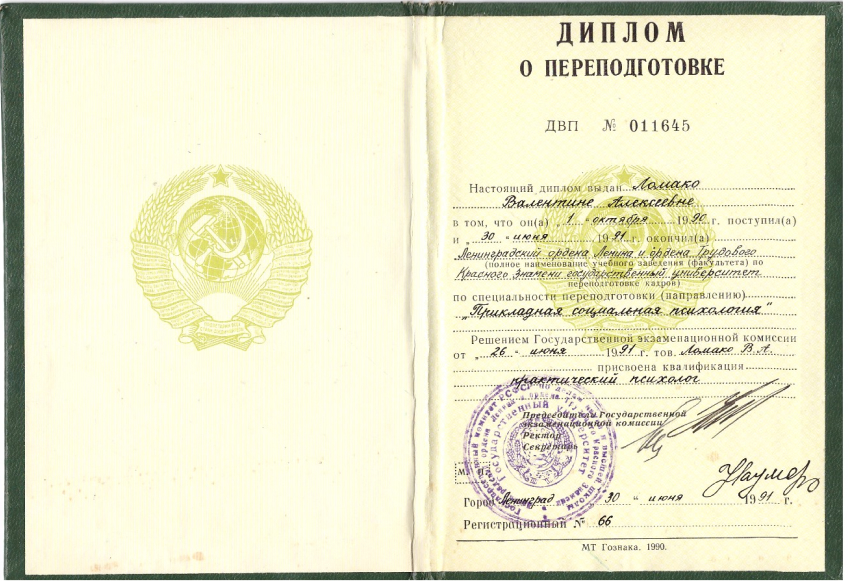 ДИПЛОМ
О ПЕРЕПОДГОТОВКЕ
ДВП № 011645
Настоящий диплом выдан Ломако
Валентине Алексеевне
в том, что он(а) „1 " октября 1990 г. поступил(а)
и „30 " июня 1991 г. окончил(а)
Ленинградский ордена Ленина и ордена Трудового
(полное наименование учебного заведения (факультета) по
Красного Знамени государственный университет
переподготовке кадров)
по специальности переподготовки (направлению)
„Прикладная социальная психология"
Решением Государственной экзаменационной комиссии
от „26 " июня 1991 г. тов. Ломако В.А.
присвоена квалификация
практический психолог
Председатель Государственной
экзаменационной комиссии
Ректор
Секретарь
М. П.
Город Ленинград 30 " июня 1991 г.
Регистрационный № 66
МТ Гознака. 1990.